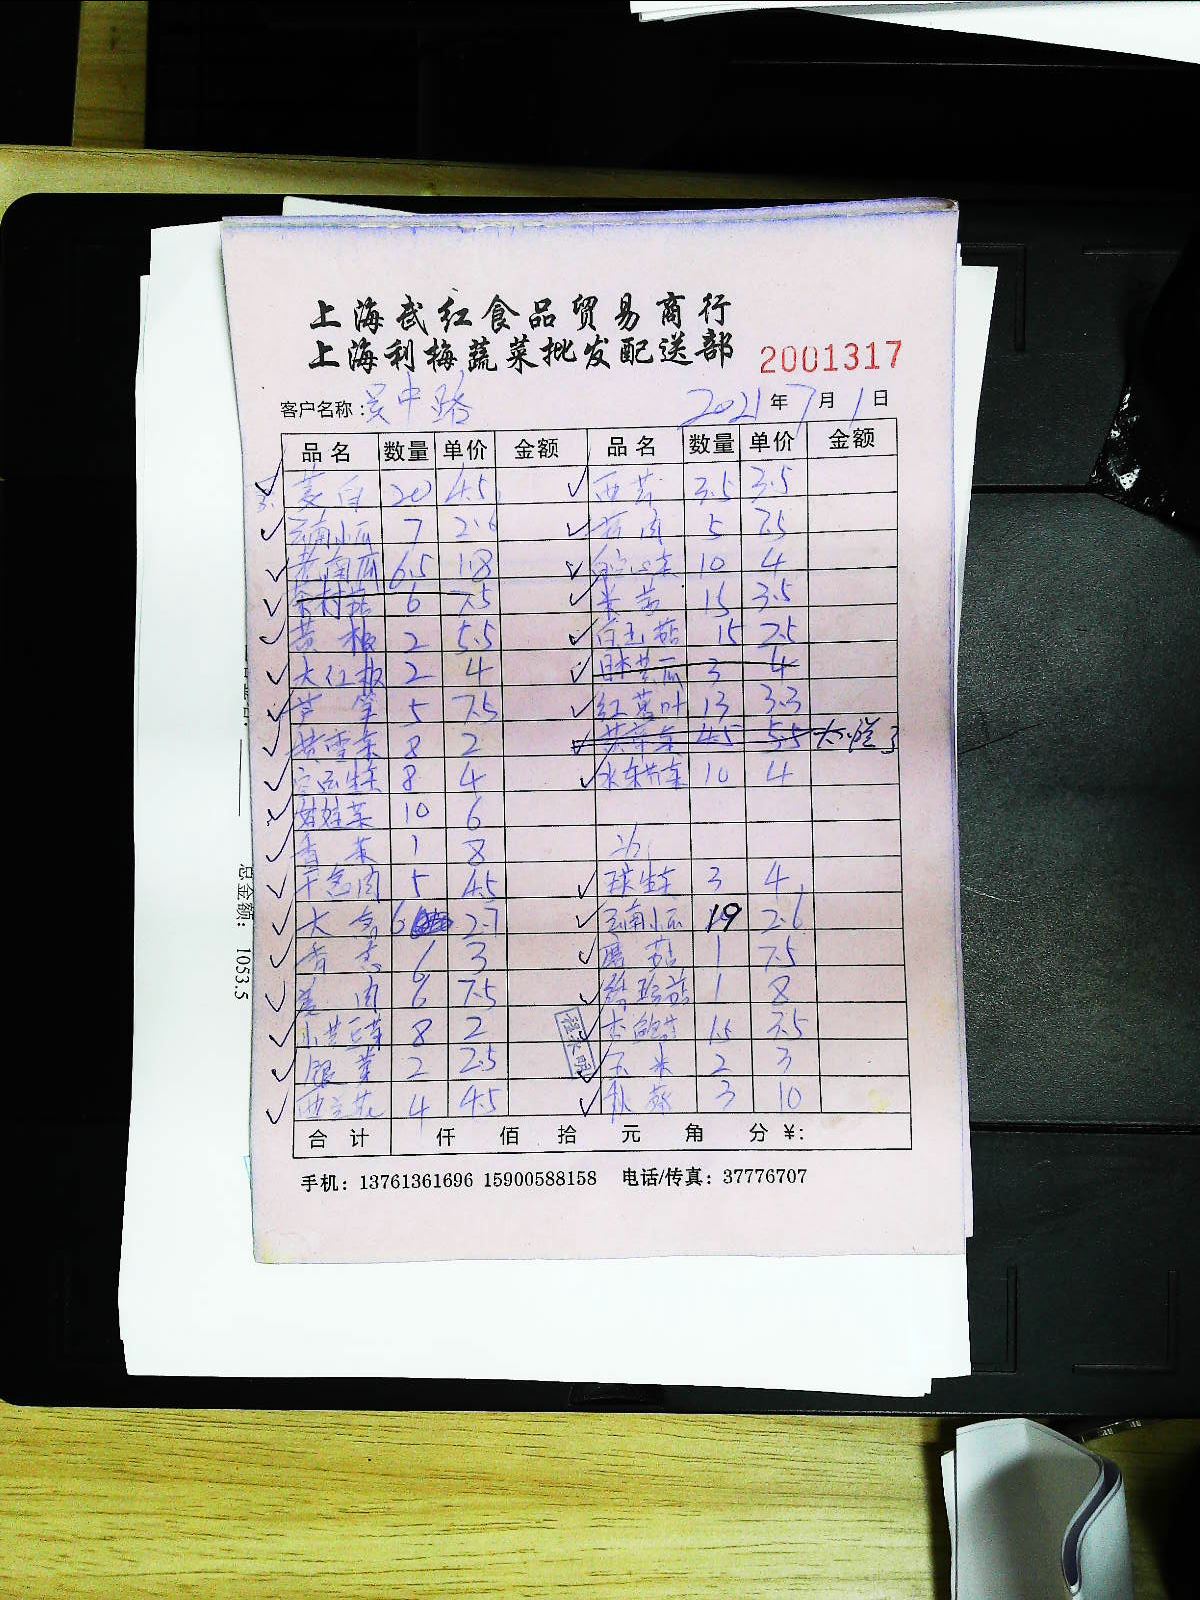 上海武红食品贸易商行
上海利梅蔬菜批发配送部 2001317
客户名称：吴中路 2021年7月1日
品名 数量 单价 金额 品名 数量 单价 金额
茭白 20 4.5 西芹 3.5 3.5
云南小瓜 7 2.6 5 7.5
老南瓜 6.5 1.8 空心菜 10 4
杏村菇 6 7.5 米苋 15 3.5
黄椒 2 5.5 白玉菇 15 7.5
大红椒 2 4 日本黄瓜 3 4
芦笋 5 7.5 红薯叶 13 3.3
8 2 4.5 5.5 太渣了
生菜 8 4 水东芥菜 10 4
娃娃菜 10 6
香菜 1 8
干葱肉 5 4.5 球生菜 3 4
大葱 6 2.7 云南小瓜 19 2.6
香葱 6 3 蘑菇 1 7.5
姜肉 6 7.5 1 8
小黄豆芽 8 2 杏鲍菇 1.5 7.5
银芽 2 2.5 玉米 2 3
西兰花 4 4.5 秋葵 3 10
合计 仟 佰 拾 元 角 分 ¥:
手机：13761361696 15900588158 电话/传真：37776707
总金额： 1053.5